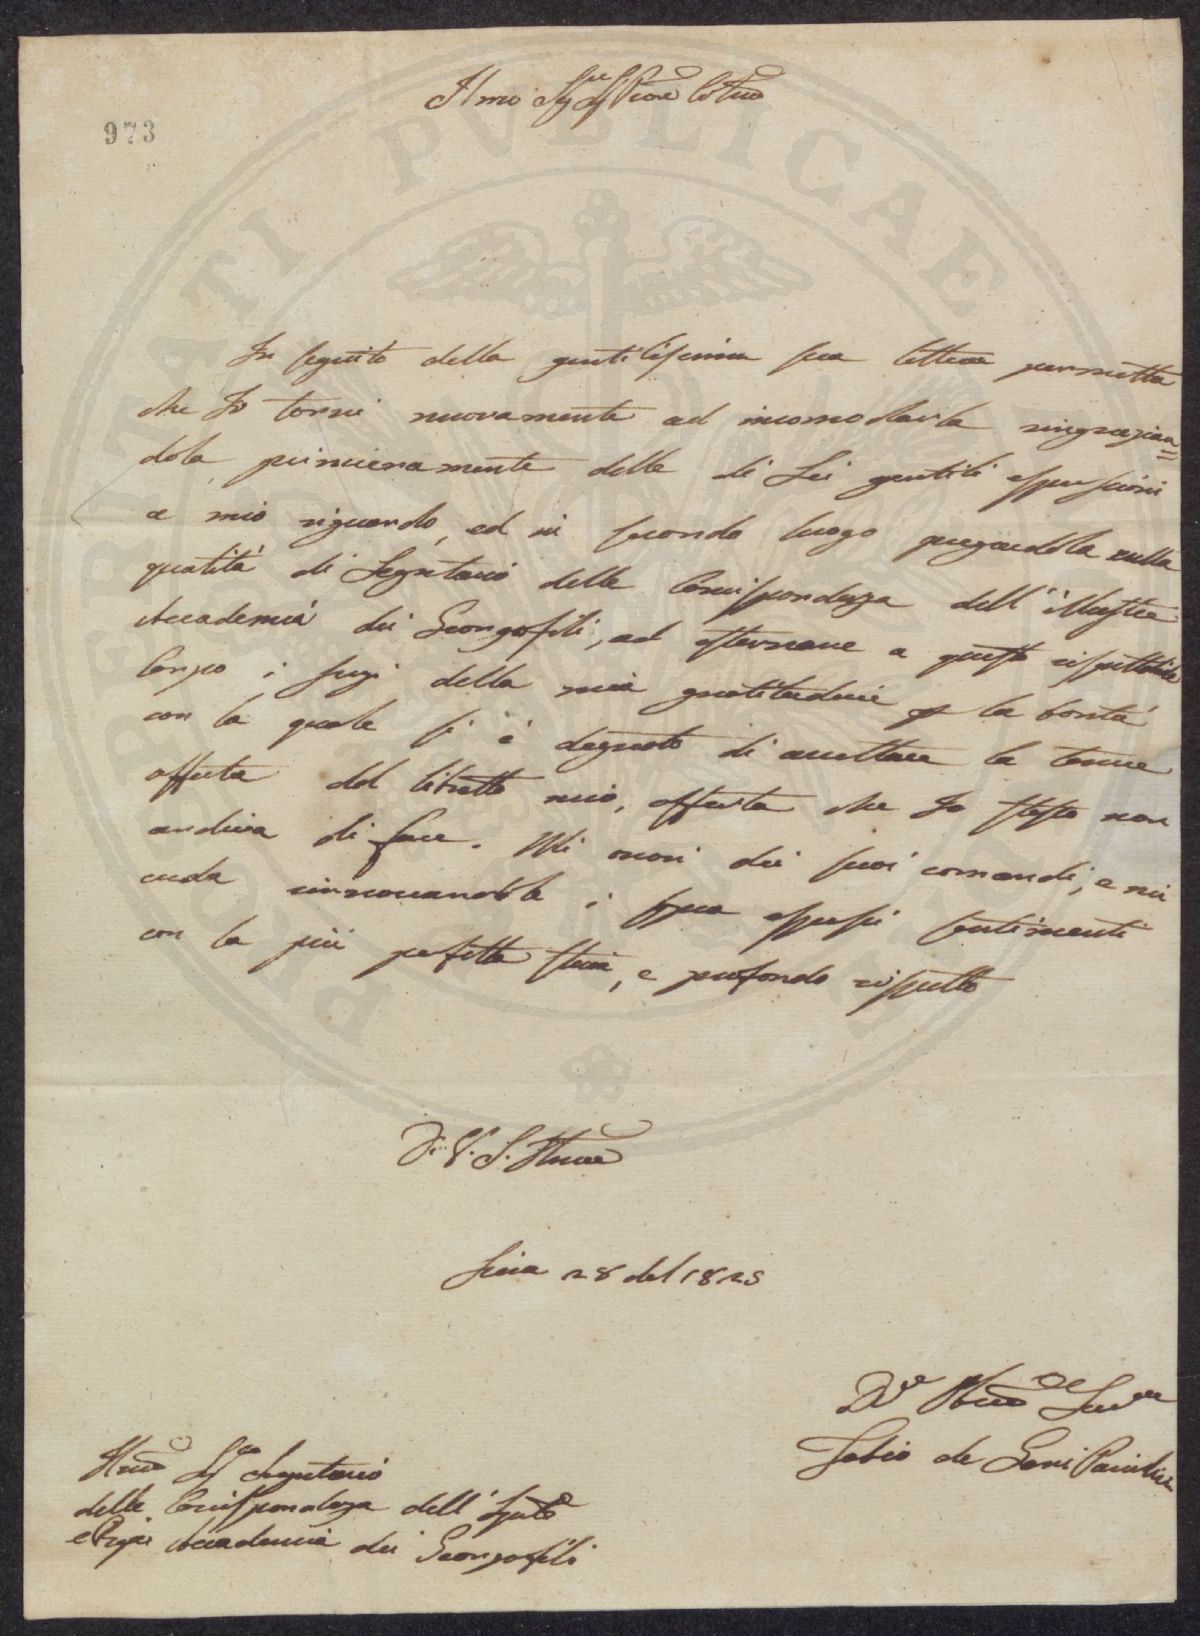 Illmo Sigre Sig Prone Colmo
973
In seguito della gentilissima sua lettera permetta
che Io torni nuovamente ad incomodarla ringrazian=
dola primieramente delle di Lei gentili espressioni
a mio riguardo, ed in secondo luogo pregandola nella
qualità di Segretario della Corrispondenza dell'illustre
Accademia dei Georgofili, ad esternare a questo rispettabile
Corpo i sensi della mia gratitudine per la bontà
con la quale si è degnato di accettare la tenue
offerta del libretto mio, offerta che Io stesso non
ardiva di fare. Mi onori dei suoi comandi, e mi
creda rinnovandole i sopra espressi sentimenti
con la più perfetta stima, e profondo rispetto
Di V. S. Illma
Siena 28 del 1825
Dvo Obbmo Serve
Fabio de Gori Pannilini
Illmo Sigr Segretario
della Corrispondenza dell'
e Accademia dei Georgofili
PVBLICAE